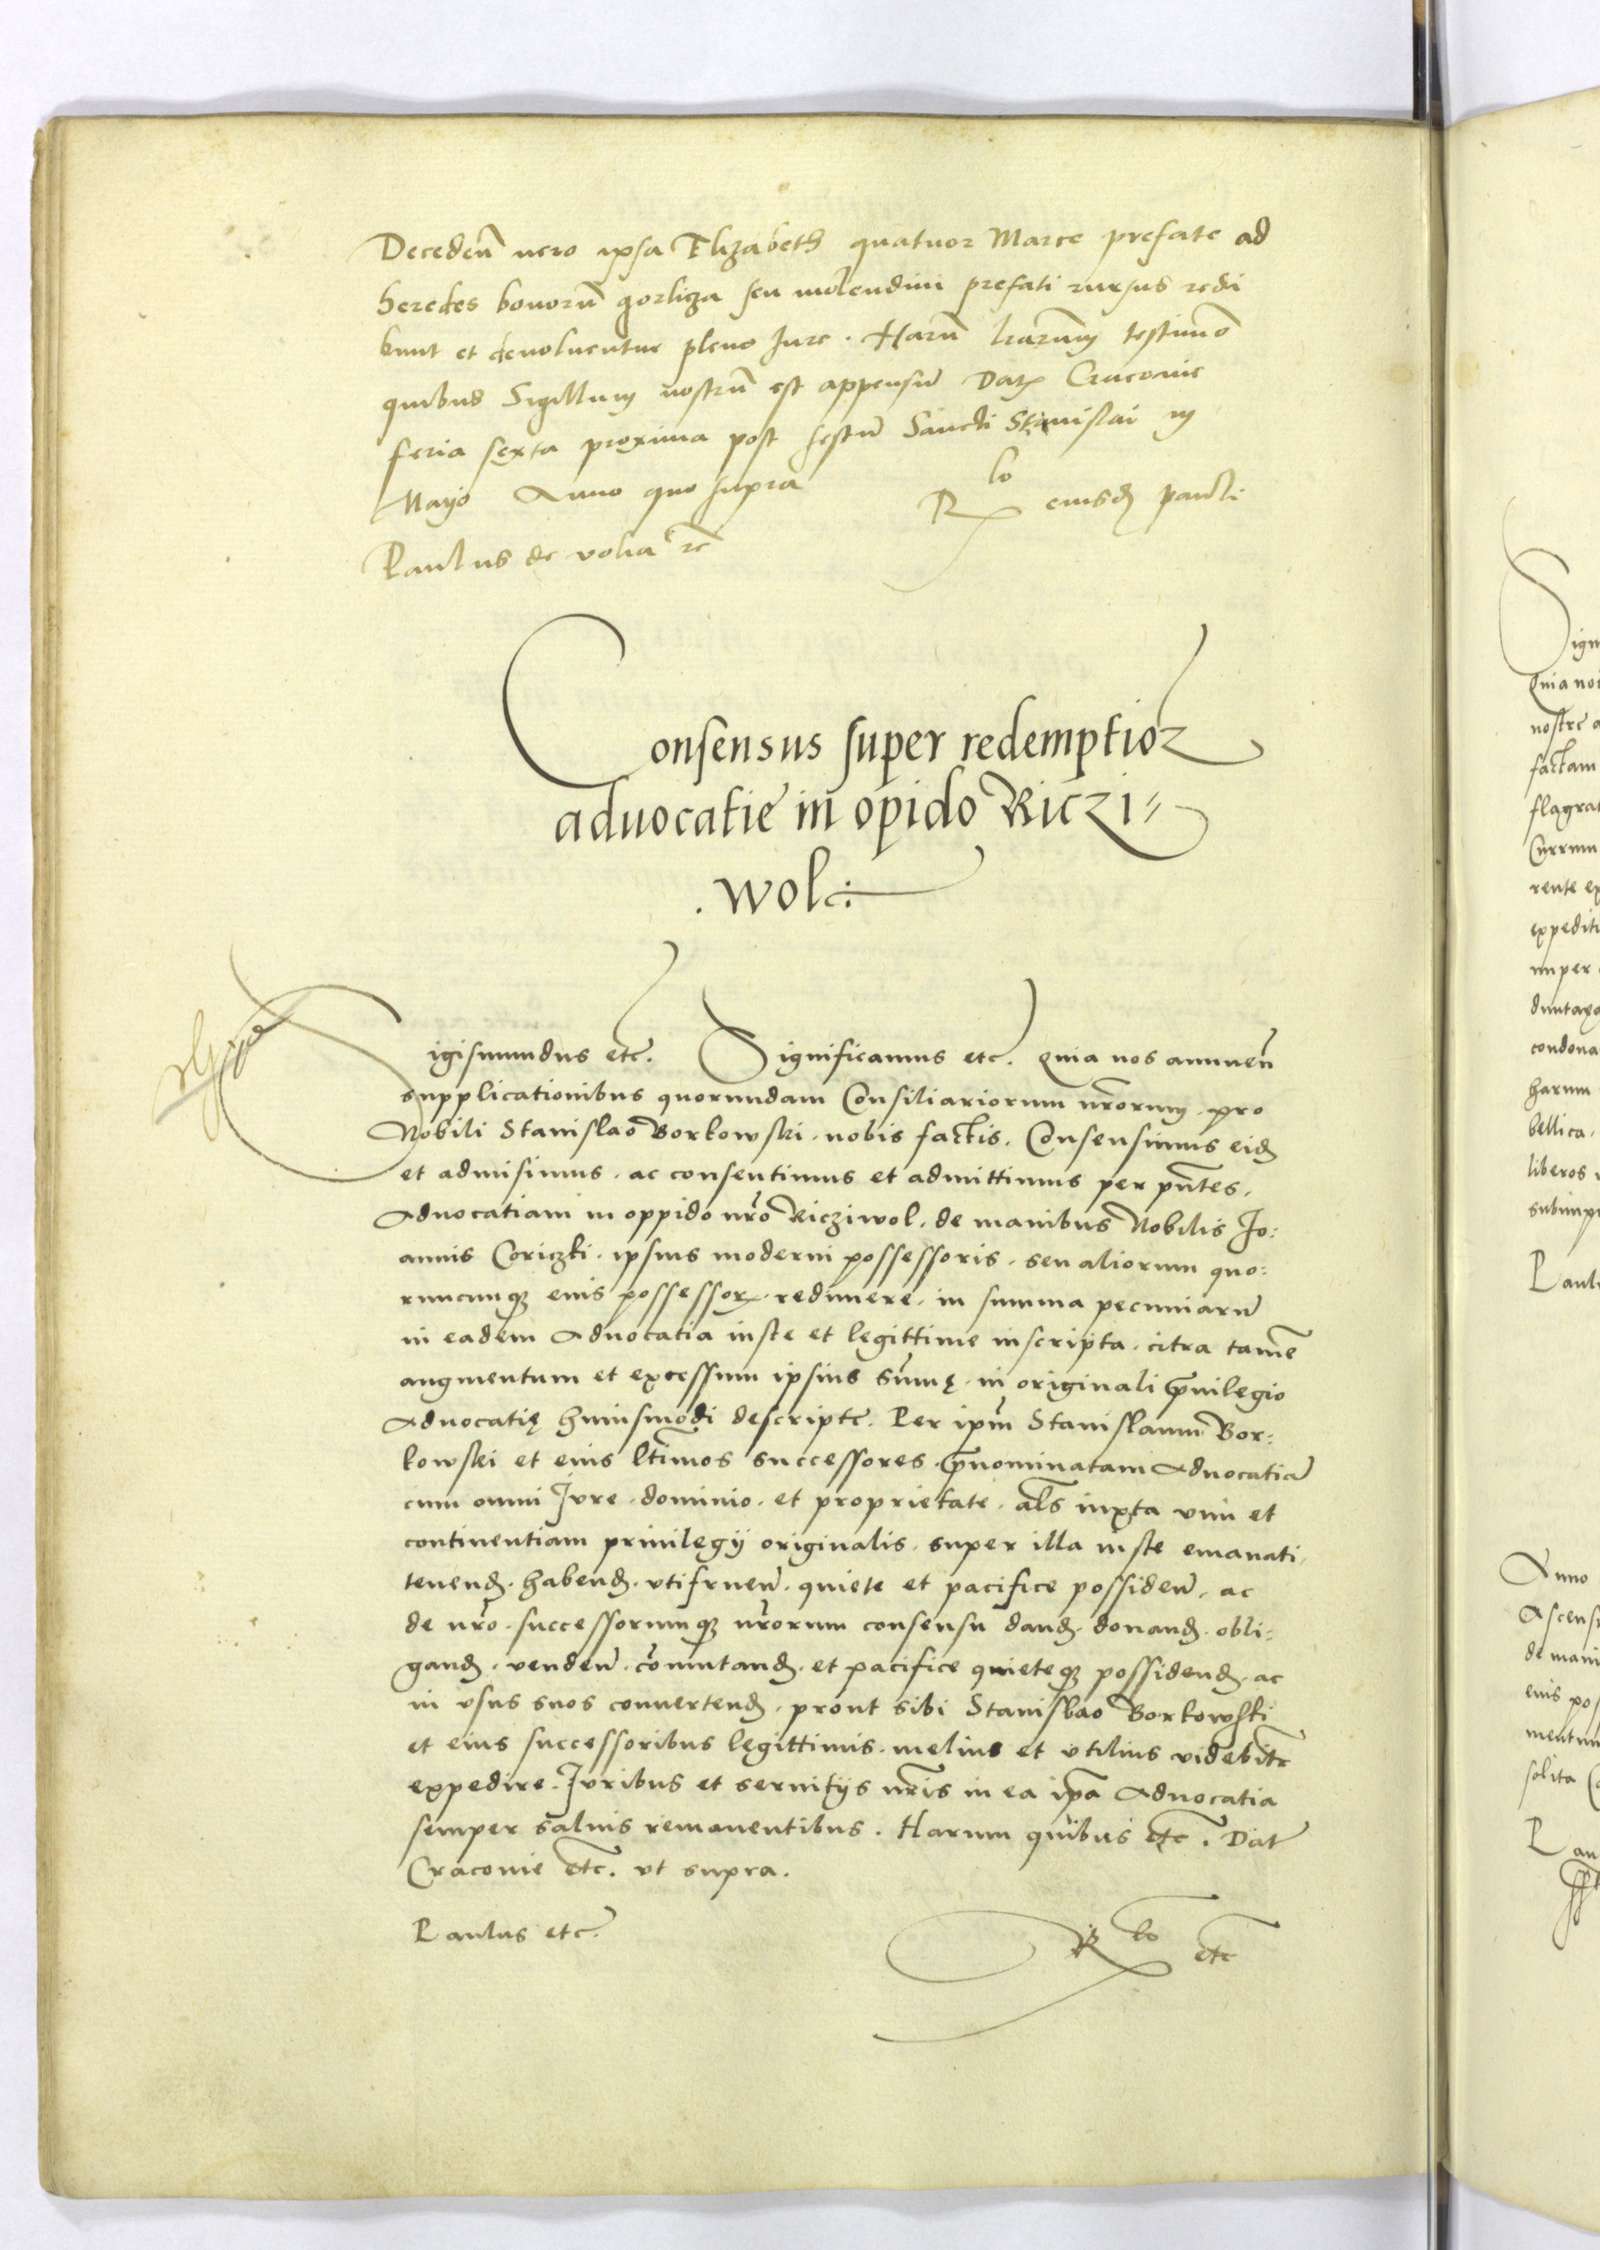 Decedeñ vero ipsa Elizabeth quatuor Marce prefate ad
heredes bonorũ gorliza seu molendini prefati rursus redi
bunt et devoluentur pleno Jure. Harũ lrarum testimo
quibus Sigillum nostrũ est appensũ Datꝫ Cracouie
feria sexta proxima post festũ Sancti Stanislai in
Mayo Anno quo supra
Rlo eiusdꝫ pauli
Paulus de volia
Consensus super redemptioꝫ
aduocatie in opido Riczi=
.wol:
Sigismundus etc. Significamus etc. Quia nos annueñ
supplicationibus quorundam Consiliariorum nrorum, pro
Nobili Stanislao Borkowski, nobis factis, Consensimus eidꝫ
et admisimus, ac consentimus et admittimus per pñtes,
Aduocatiam in oppido nro Ricziwol, de manibus Nobilis Jo:
annis Coriczki, ipsius moderni possessoris, seu aliorum quo:
rumcunqꝫ eius possessorꝫ, redimere, in summa pecuniarũ
in eadem Aduocatia iuste et legittime inscripta, citra tamẽ
augmentum et excessum ipsius sũmę, in originali priuilegio
Aduocatię huiusmodi descripte. Per ipm̃ Stanislaum Bor:
kowski et eius ltimos successores prenominatam Aduocatiã
cum omni Jure, dominio, et proprietate, als iuxta vim et
continentiam priuilegij originalis, super illa iuste emanati,
tenendꝫ, habendꝫ, vtifrueñ, quiete et pacifice possideñ, ac
de nro, successorumqꝫ nrorum consensu dandꝫ, donandꝫ, obli=
gandꝫ, vendeñ, cõmutandꝫ, et pacifice quieteqꝫ possidendꝫ, ac
in vsus suos conuertendꝫ, prout sibi Stanislao Borkowski
et eius successoribus legittimis, melius et vtilius videbitr
expedire. Juribus et seruitijs nris in ea ipa Aduocatia
semper saluis remanentibus. Harum quibus etc. Dat
Cracouie etc. vt supra.
Paulus etc.
Rlo etc